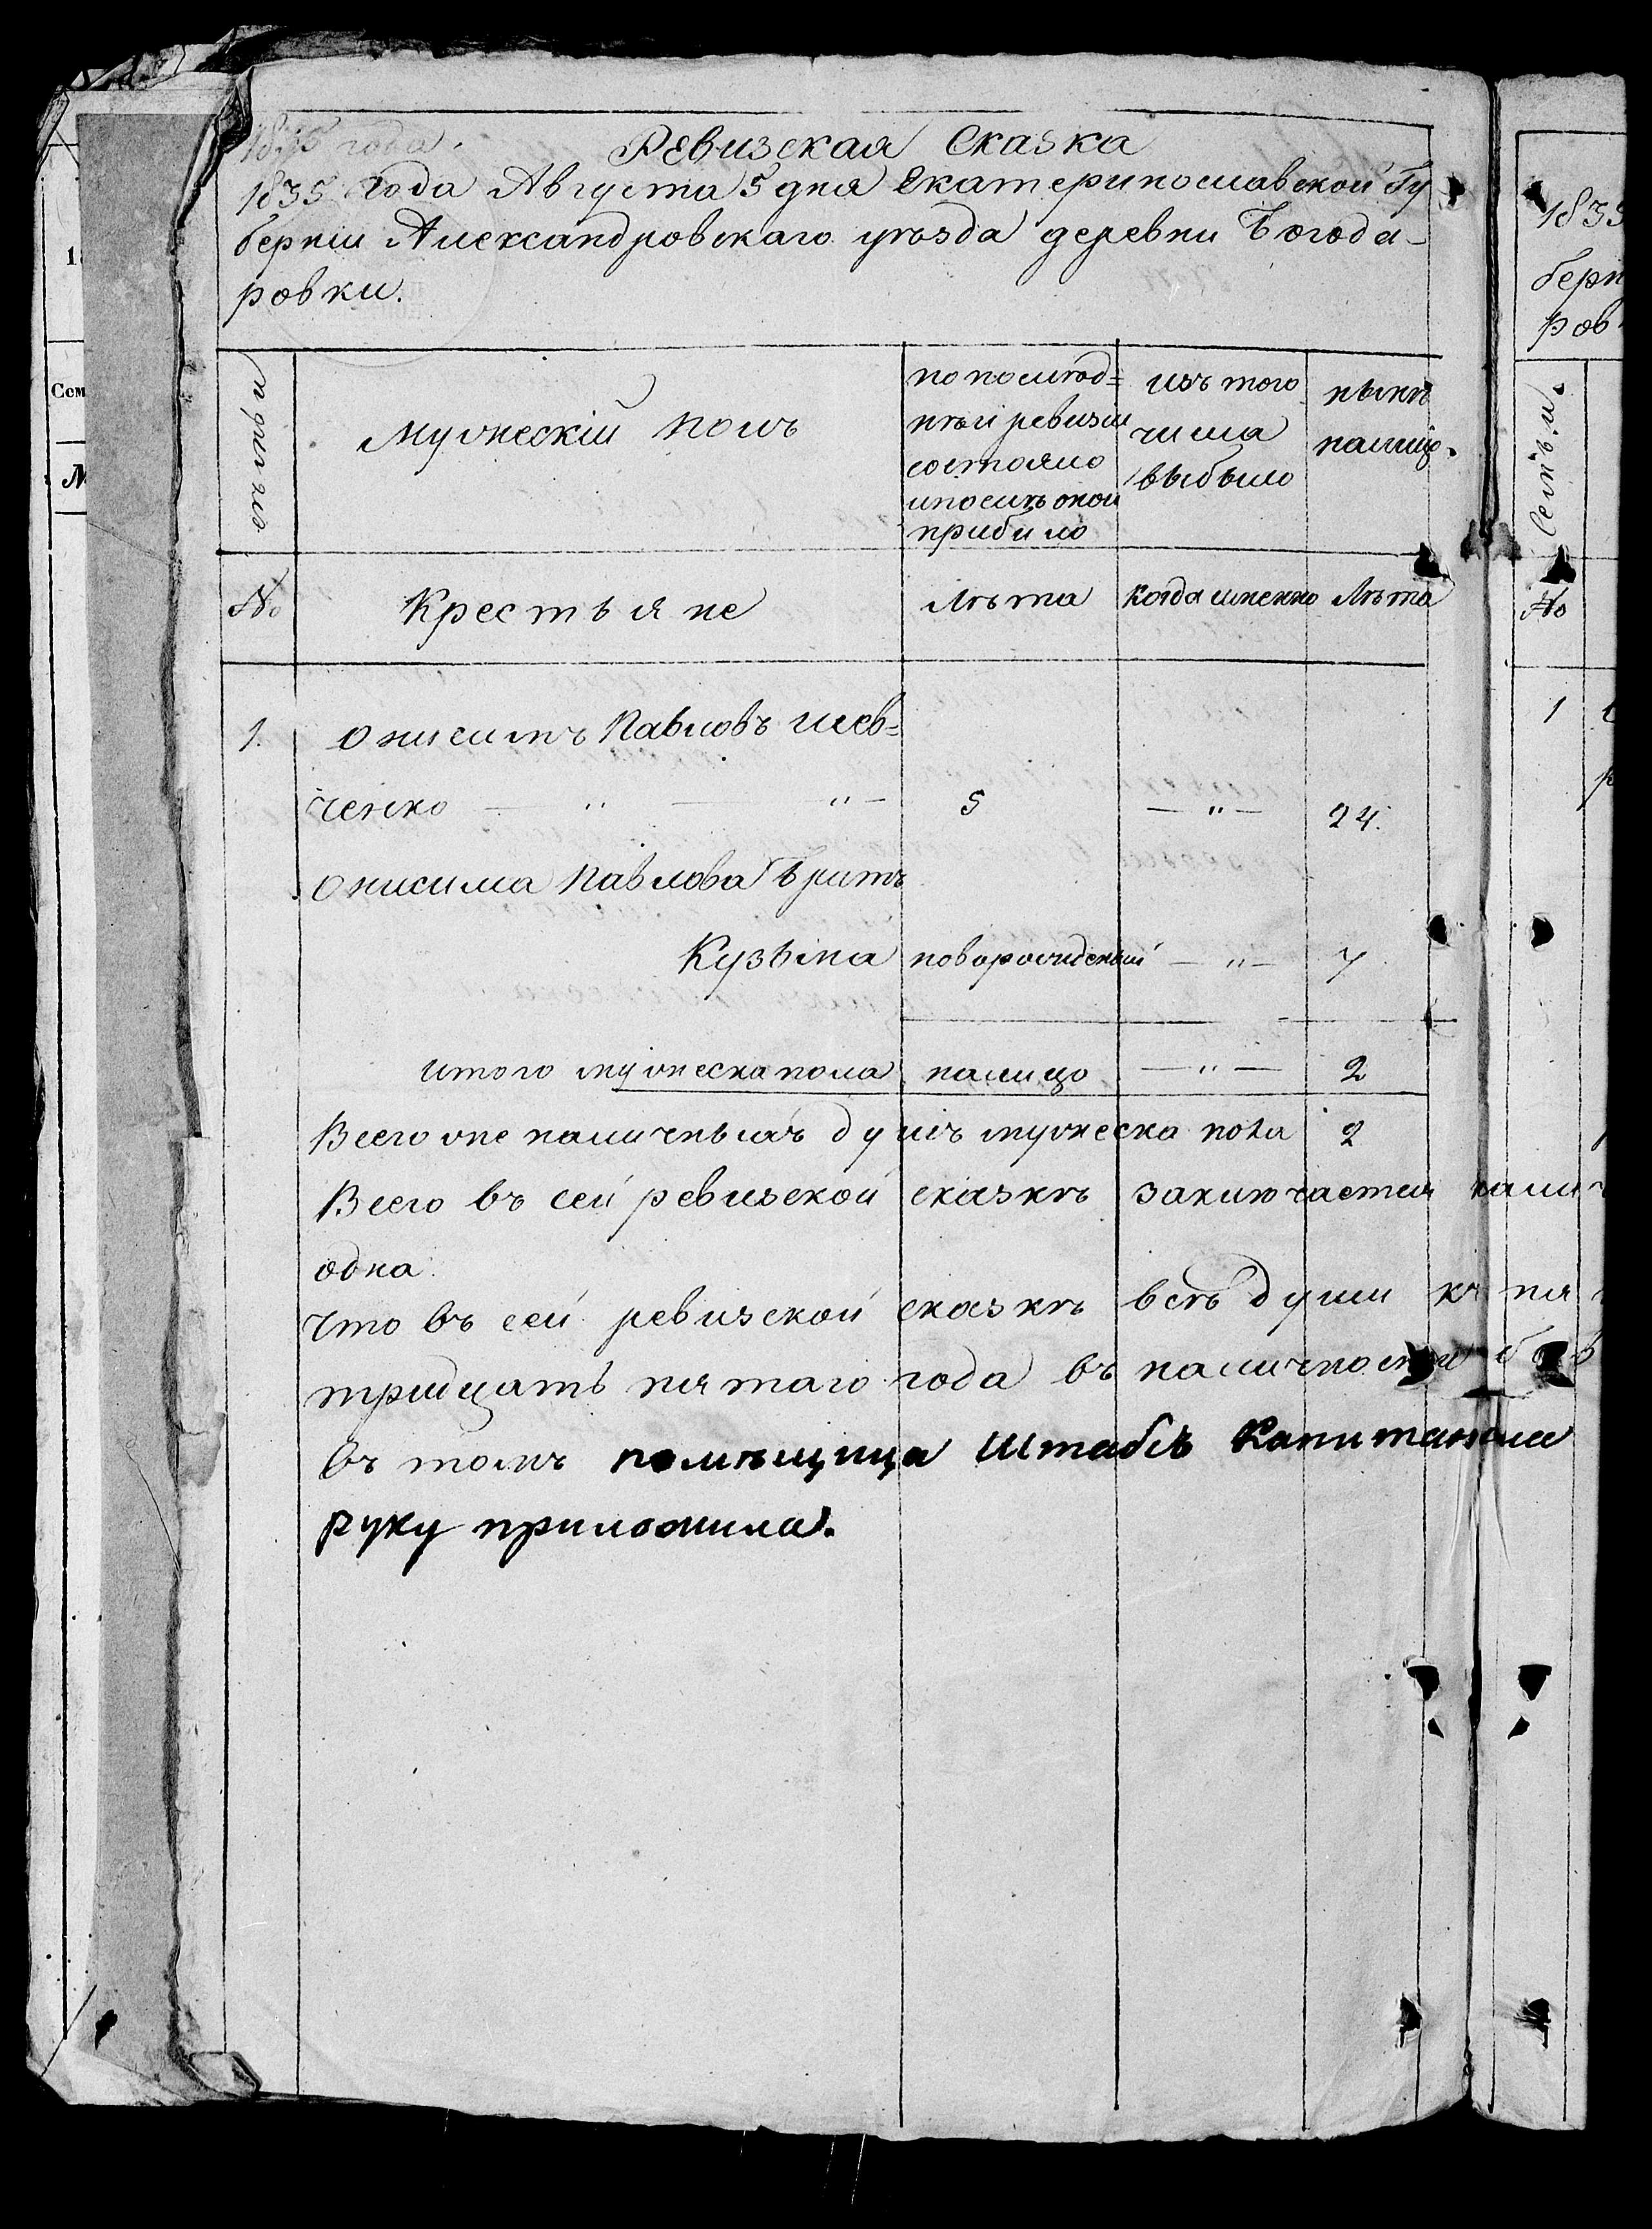 Ревизская Сказка
1835 года Августа 5 дня Екатеринославской Гу
берніи Александровскаго уѣзда деревни Богода-
ровки.
семьи
Мужескій полъ
по послѣд=
нѣй ревизіи
состояло
и послѣ оной
прибыло
изъ того
числа
выбыло
нынѣ
налицо.
№
Крестьяне
Лѣта
когда именно
Лѣта
1.
Онисимъ Павловъ Шев=
ченко — " — " —
5
— " —
24.
Онисима Павлова Братъ
Кузьма
новорожденый
— " —
7
Итого мужеска пола
налицо
— " —
2
Всего же наличныхъ душъ мужеска пола
2
Всего въ сей ревизской сказкѣ заключается налич
одна.
Что въ сей ревизской сказкѣ всѣ души къ пя
тридцать пятаго года въ наличности
въ томъ помѣщица Штабсъ Капитанша
руку приложила.
Семѣи.
№
1
1835
берн
ров
Сем